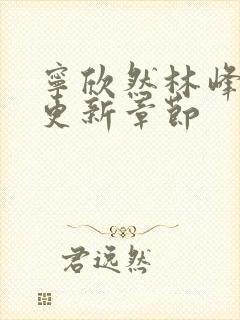 寧欣然林峰
更新章節
君远然